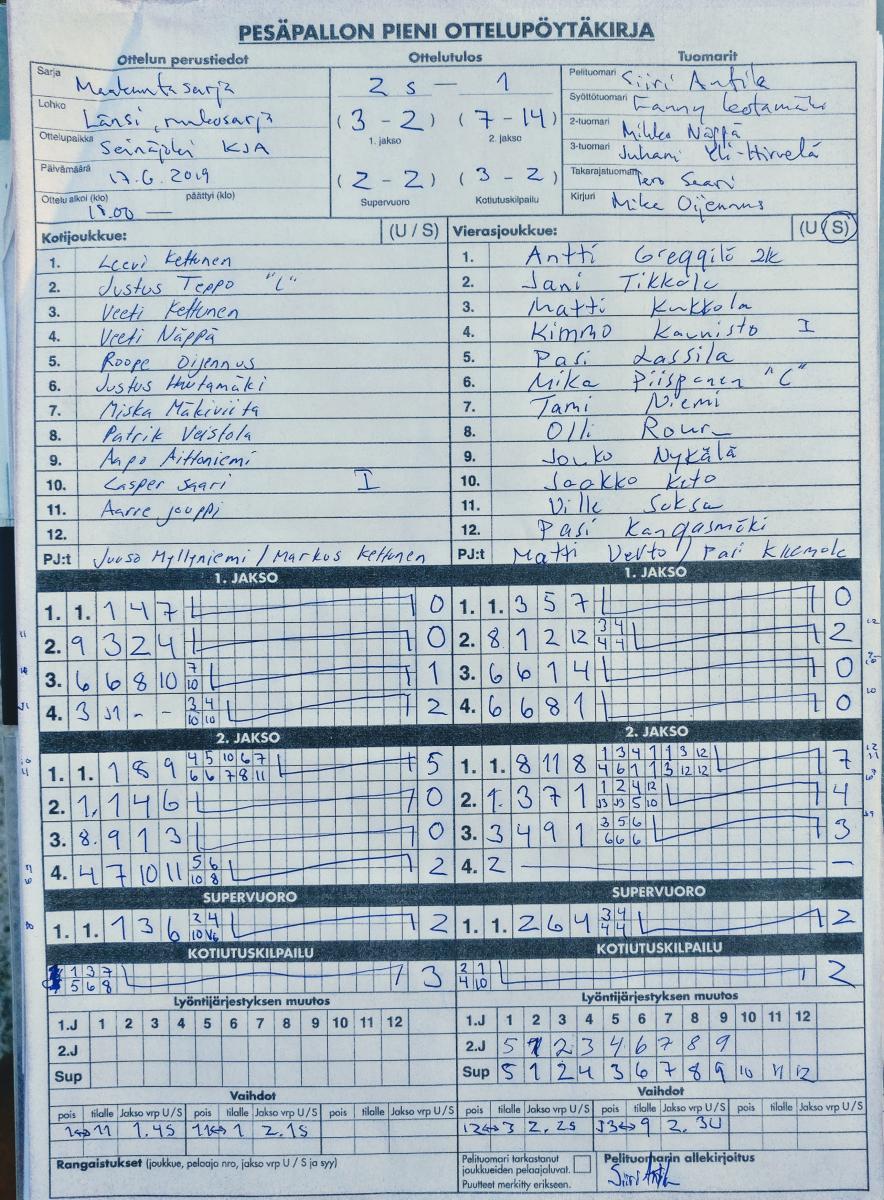 PESÄPALLON PIENI OTTELUPÖYTÄKIRJA
Ottelun perustiedot Ottelutulos Tuomarit
Sarja Maakuntasarja
Lohko Länsi, runkosarja
Ottelupaikka Seinäjoki KSA
Päivämäärä 17.6.2019
Ottelu alkoi (klo) päättyi (klo)
18.00 —
2 s — 1
(3 - 2) (7 - 14)
1. jakso 2. jakso
(2 - 2) (3 - 2)
Supervuoro Kotiutuskilpailu
Pelituomari Siiri Antila
Syöttötuomari Fanny
2-tuomari Mikko Näppä
3-tuomari Juhani Yli-Hirvelä
Takarajatuomari Tero Saari
Kirjuri Mika Oijennus
Kotijoukkue: (U / S)
1. Leevi Kettunen
2. Justus Teppo "C"
3. Veeti Kettunen
4. Veeti Näppä
5. Roope Oijennus
6. Justus Huhtamäki
7. Miska Mäkiviita
8. Patrik Veistola
9. Aapo Aittoniemi
10. Casper Saari I
11. Aarre Jouppi
12.
PJ:t Juuso Myllyniemi / Markus Kettunen
Vierasjoukkue: (U / S)
1. Antti Greggilä 2k
2. Jani Tikkala
3. Matti Kukkola
4. Kimmo Kaunisto I
5. Pasi Lassila
6. Mika Piispanen "C"
7. Tami Niemi
8. Olli
9. Jouko Nykälä
10. Jaakko Keto
11. Ville
12. Pasi Kangasmäki
PJ:t Matti / Pasi
1. JAKSO 1. JAKSO
1. 1. 1 4 7 0 1. 1. 3 5 7 0
2. 9 3 2 4 0 2. 8 1 2 12 3 4 2
4 4
3. 6 6 8 10 7 1 3. 6 6 1 4 0
10
4. 3 J1 - - 3 4 2 4. 6 6 8 1 0
10 10
2. JAKSO 2. JAKSO
1. 1. 1 8 9 4 5 10 6 7 5 1. 1. 8 11 8 1 3 4 1 1 3 12 7
6 6 7 8 11 4 6 1 1 3 12 12
2. 1. 1 4 6 0 2. 1. 3 7 1 1 2 4 12 4
J3 J3 5 10
3. 8. 9 1 3 0 3. 3 4 9 1 3 5 6 3
6 6 6
4. 4 7 10 11 5 6 2 4. 2 — —
10 8
SUPERVUORO SUPERVUORO
1. 1. 1 3 6 2 4 2 1. 1. 2 6 4 3 4 2
10 V6 4 4
KOTIUTUSKILPAILU KOTIUTUSKILPAILU
1 3 7 3 2 1 2
5 6 8 4 10
Lyöntijärjestyksen muutos Lyöntijärjestyksen muutos
1.J 1 2 3 4 5 6 7 8 9 10 11 12 1.J 1 2 3 4 5 6 7 8 9 10 11 12
2.J 2.J 5 1 2 3 4 6 7 8 9
Sup Sup 5 1 2 4 3 6 7 8 9 10 11 12
Vaihdot Vaihdot
pois tilalle Jakso vrp U / S pois tilalle Jakso vrp U / S pois tilalle Jakso vrp U / S pois tilalle Jakso vrp U / S pois tilalle Jakso vrp U / S pois tilalle Jakso vrp U / S
1↔11 1.4S 11↔1 2.1S 12↔3 2.2S J3↔9 2.3U
Rangaistukset (joukkue, pelaaja nro, jakso vrp U / S ja syy)
Pelituomari tarkastanut joukkueiden pelaajaluvat.
Puutteet merkitty erikseen.
Pelituomarin allekirjoitus